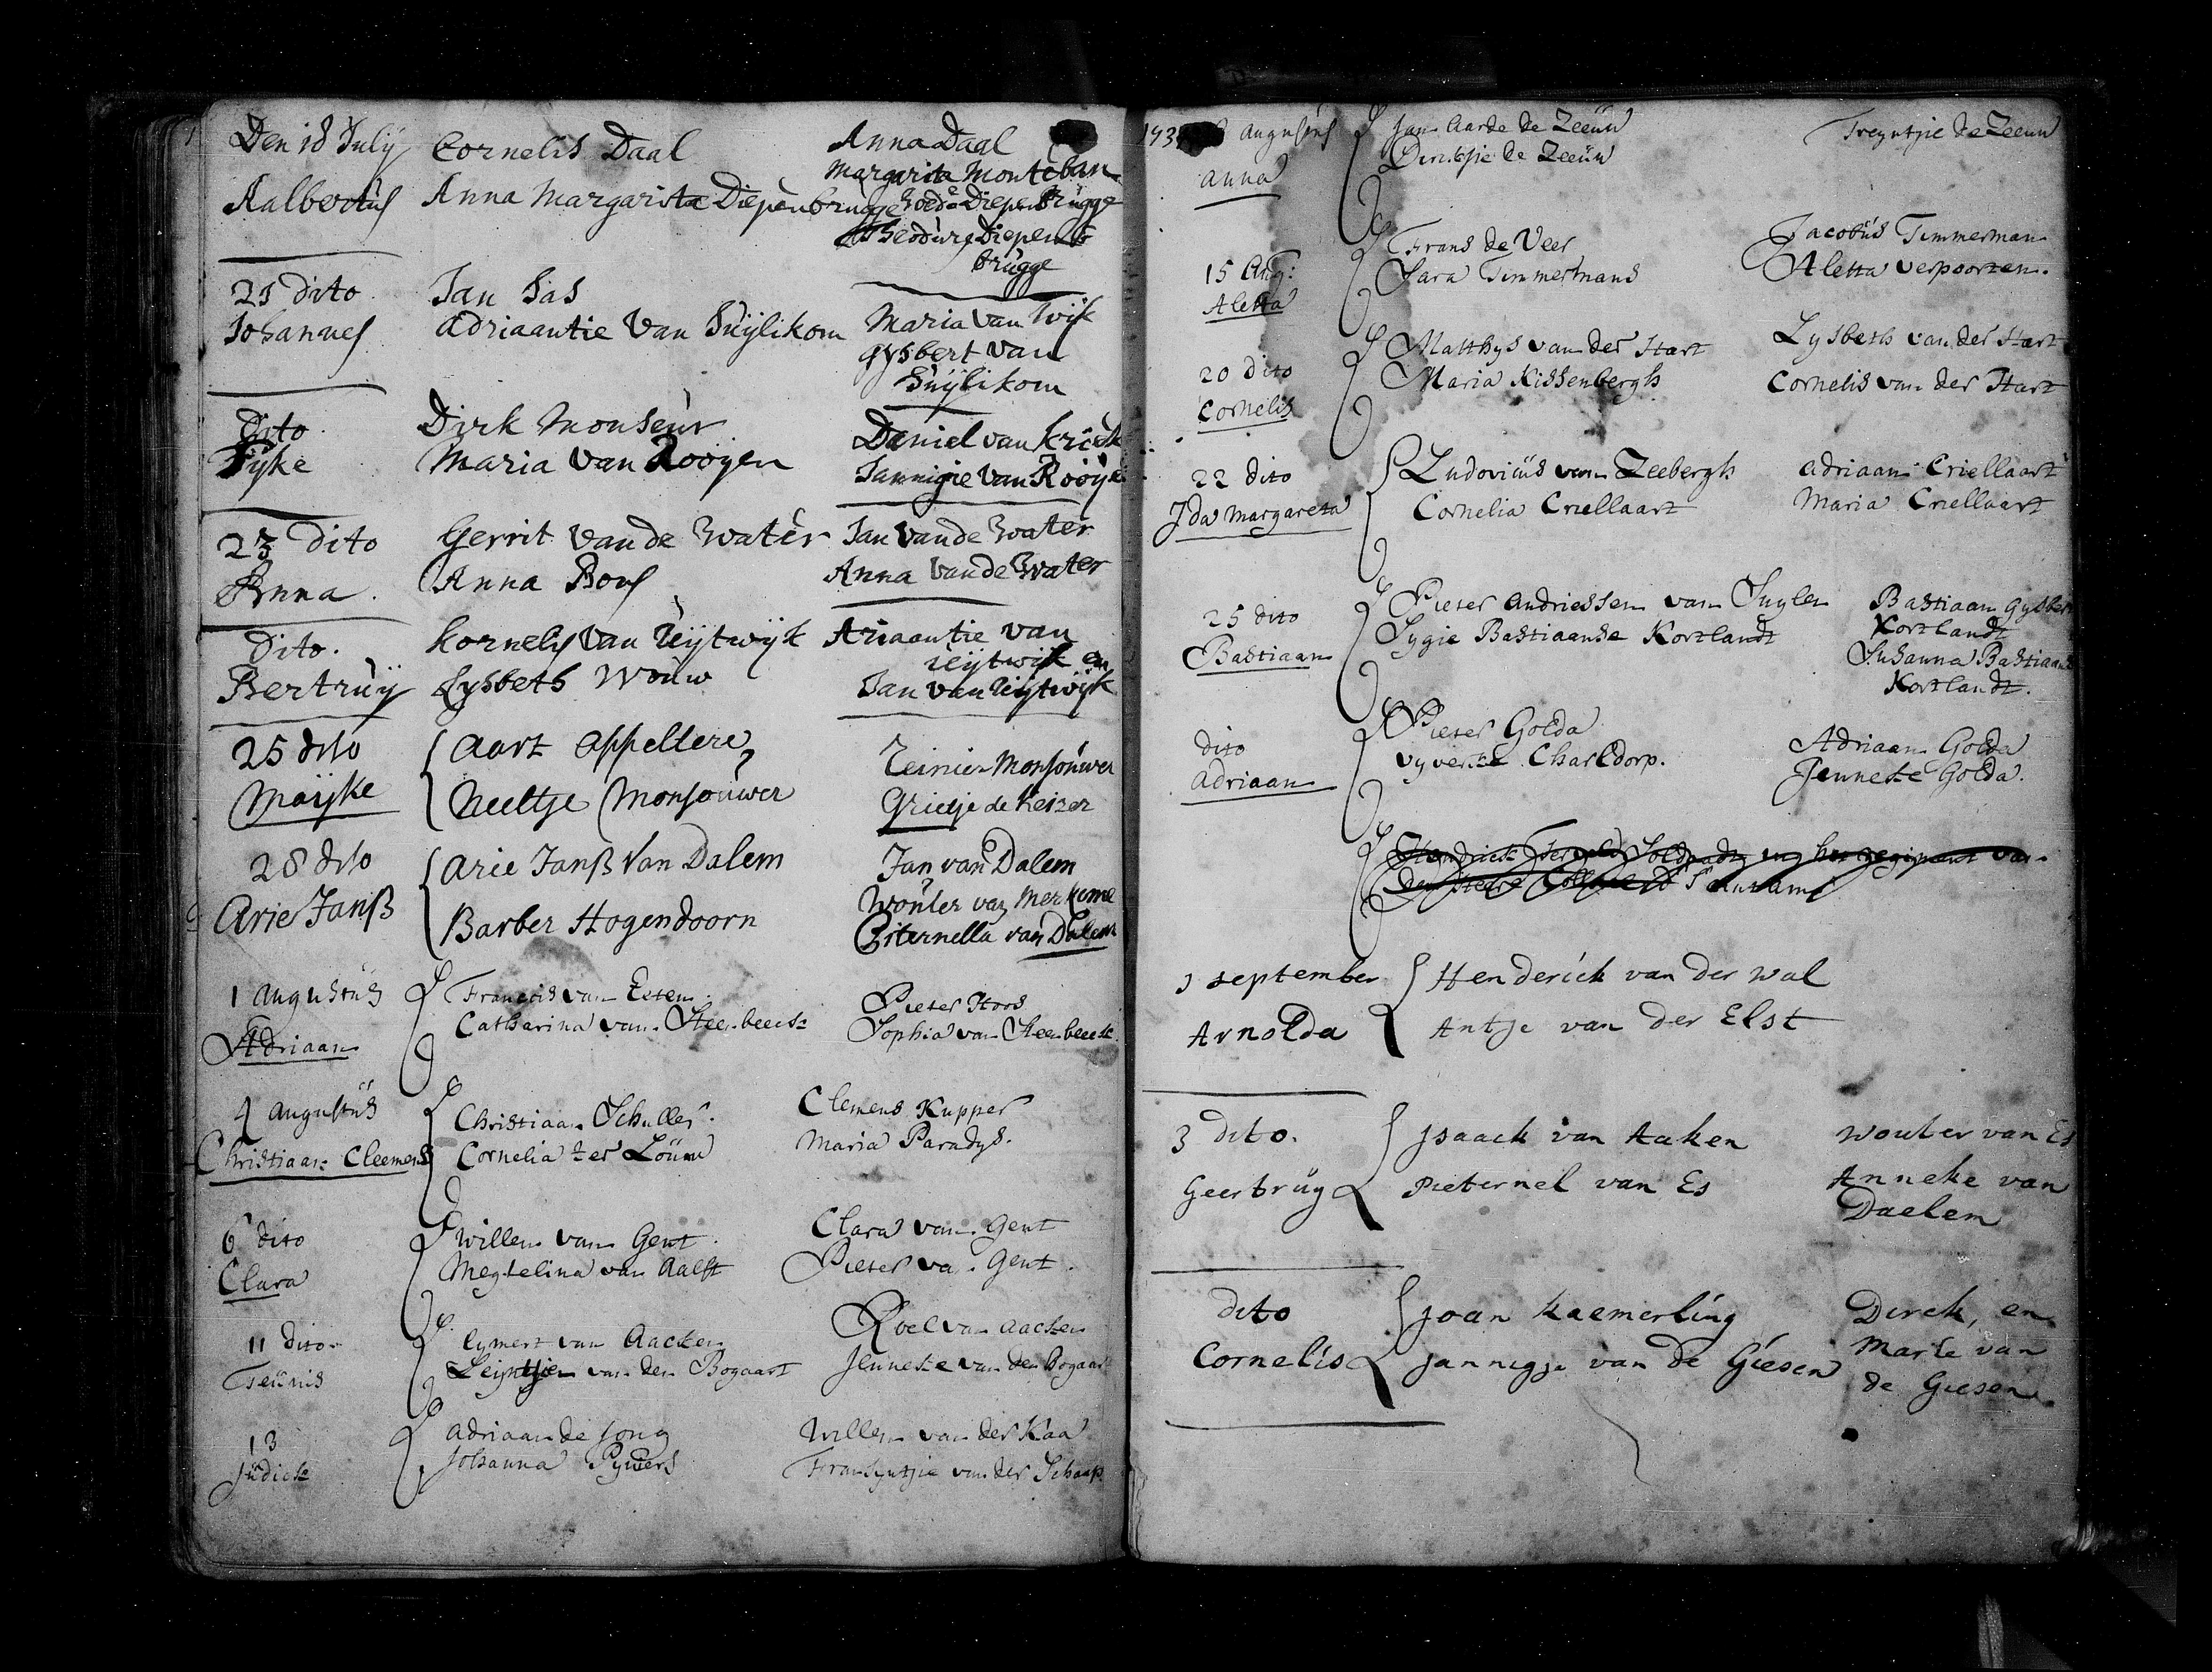 Den 18 Julij
Aalbertus
Cornelis Daal
Anna Margarita Diepenbrugge
Anna Daal
Margarita Monteban
Diepenbrugge
Theodurs Diepen
brugge
21 dito
Johannes
Jan Sas
Adriaantie Van Suijlikom
Maria Van Wijk
Gysbert van
Suijlikom
Dito
Fijke
Dirk Monseur
Maria Van Rooijen
Daniel van Kriek
Jannigie Van Rooije
23 Dito
Anna.
Gerrit Van de Water
Anna Bous
Jan Van de Water
Anna Van de Water
Dito.
Bertruij
Kornelis Van Uijtwijk
Lysbeth Wouw
Ariaantie van
Uijtwijk en
Jan van Uijtwijk
25 dito
Maijke
Aart Appeltere
Neeltje Monsouwer
Reinier Monsouwer
Grietje de Keizer
28 dito
Arie Janß
Arie Janß Van Dalem
Barber Hogendoorn
Jan van Dalem
Wouter van
Piternella van Dalem
1 Augustus
Adriaan
Francis van Esten
Catharina van Steenbeeck
Pieter
Sophia van Steenbeeck
4 Augustus
Christiaan Cleemens
Christiaan Schuller.
Cornelia ter Löuw
Clemens Kupper
Maria Paradys.
6 dito
Clara
Willem van Gent.
Megtelina van Aalst
Clara van Gent
Pieter van Gent.
11 Dito
Teunis
Eymert van Aacken
Leijntjen van den Bogaart
Roel van Aacken
Jenneke van den Bogaar
13
Judick
Adriaan de Jong
Johanna
Willem van der Kaa
Fransyntjie van der Schaap
173 Augustus
Anna
Jan Aarde de Zeeuw
Dirikjie de Zeeuw
Treyntjie de Zeeuw
15 Aug:
Aletta
Frans de Veer
Sara Timmermans
Jacobus Timmerman
Aletta Verpoorten.
20 Dito
Cornelis
Matthys van der Start
Maria Kissenbergh
Lysbeth van der Start
Cornelis van der Start
22 dito
Ida Margareta
Ludovicus van Zeebergh
Cornelia Criellaart
Adriaan Criellaart
Maria Criellaart
25 dito
Bastiaan
Pieter Andriessen van Suylen
Sygie Bastiaanse Kortlandt
Bastiaan Gysbert
Kortlandt
Susanna Bastiaans
Kortlandt.
dito
Adriaan
Pieter Golda
Charldorp.
Adriaan Golda
Jenneke Golda.
Hendrick Soldaadt in het regiment van
den Heere
1 September
Arnolda
Henderick van der Wal
Antje van der Elst
3 dito.
Geertruy
Jsaack van Aaken
Pieternel van Es
Wouter van Es
Anneke van
Daelem
dito
Cornelis
Joan Kaemerling
Jannigje van de Giesen
Dirck, en
Marie van
de Giesen